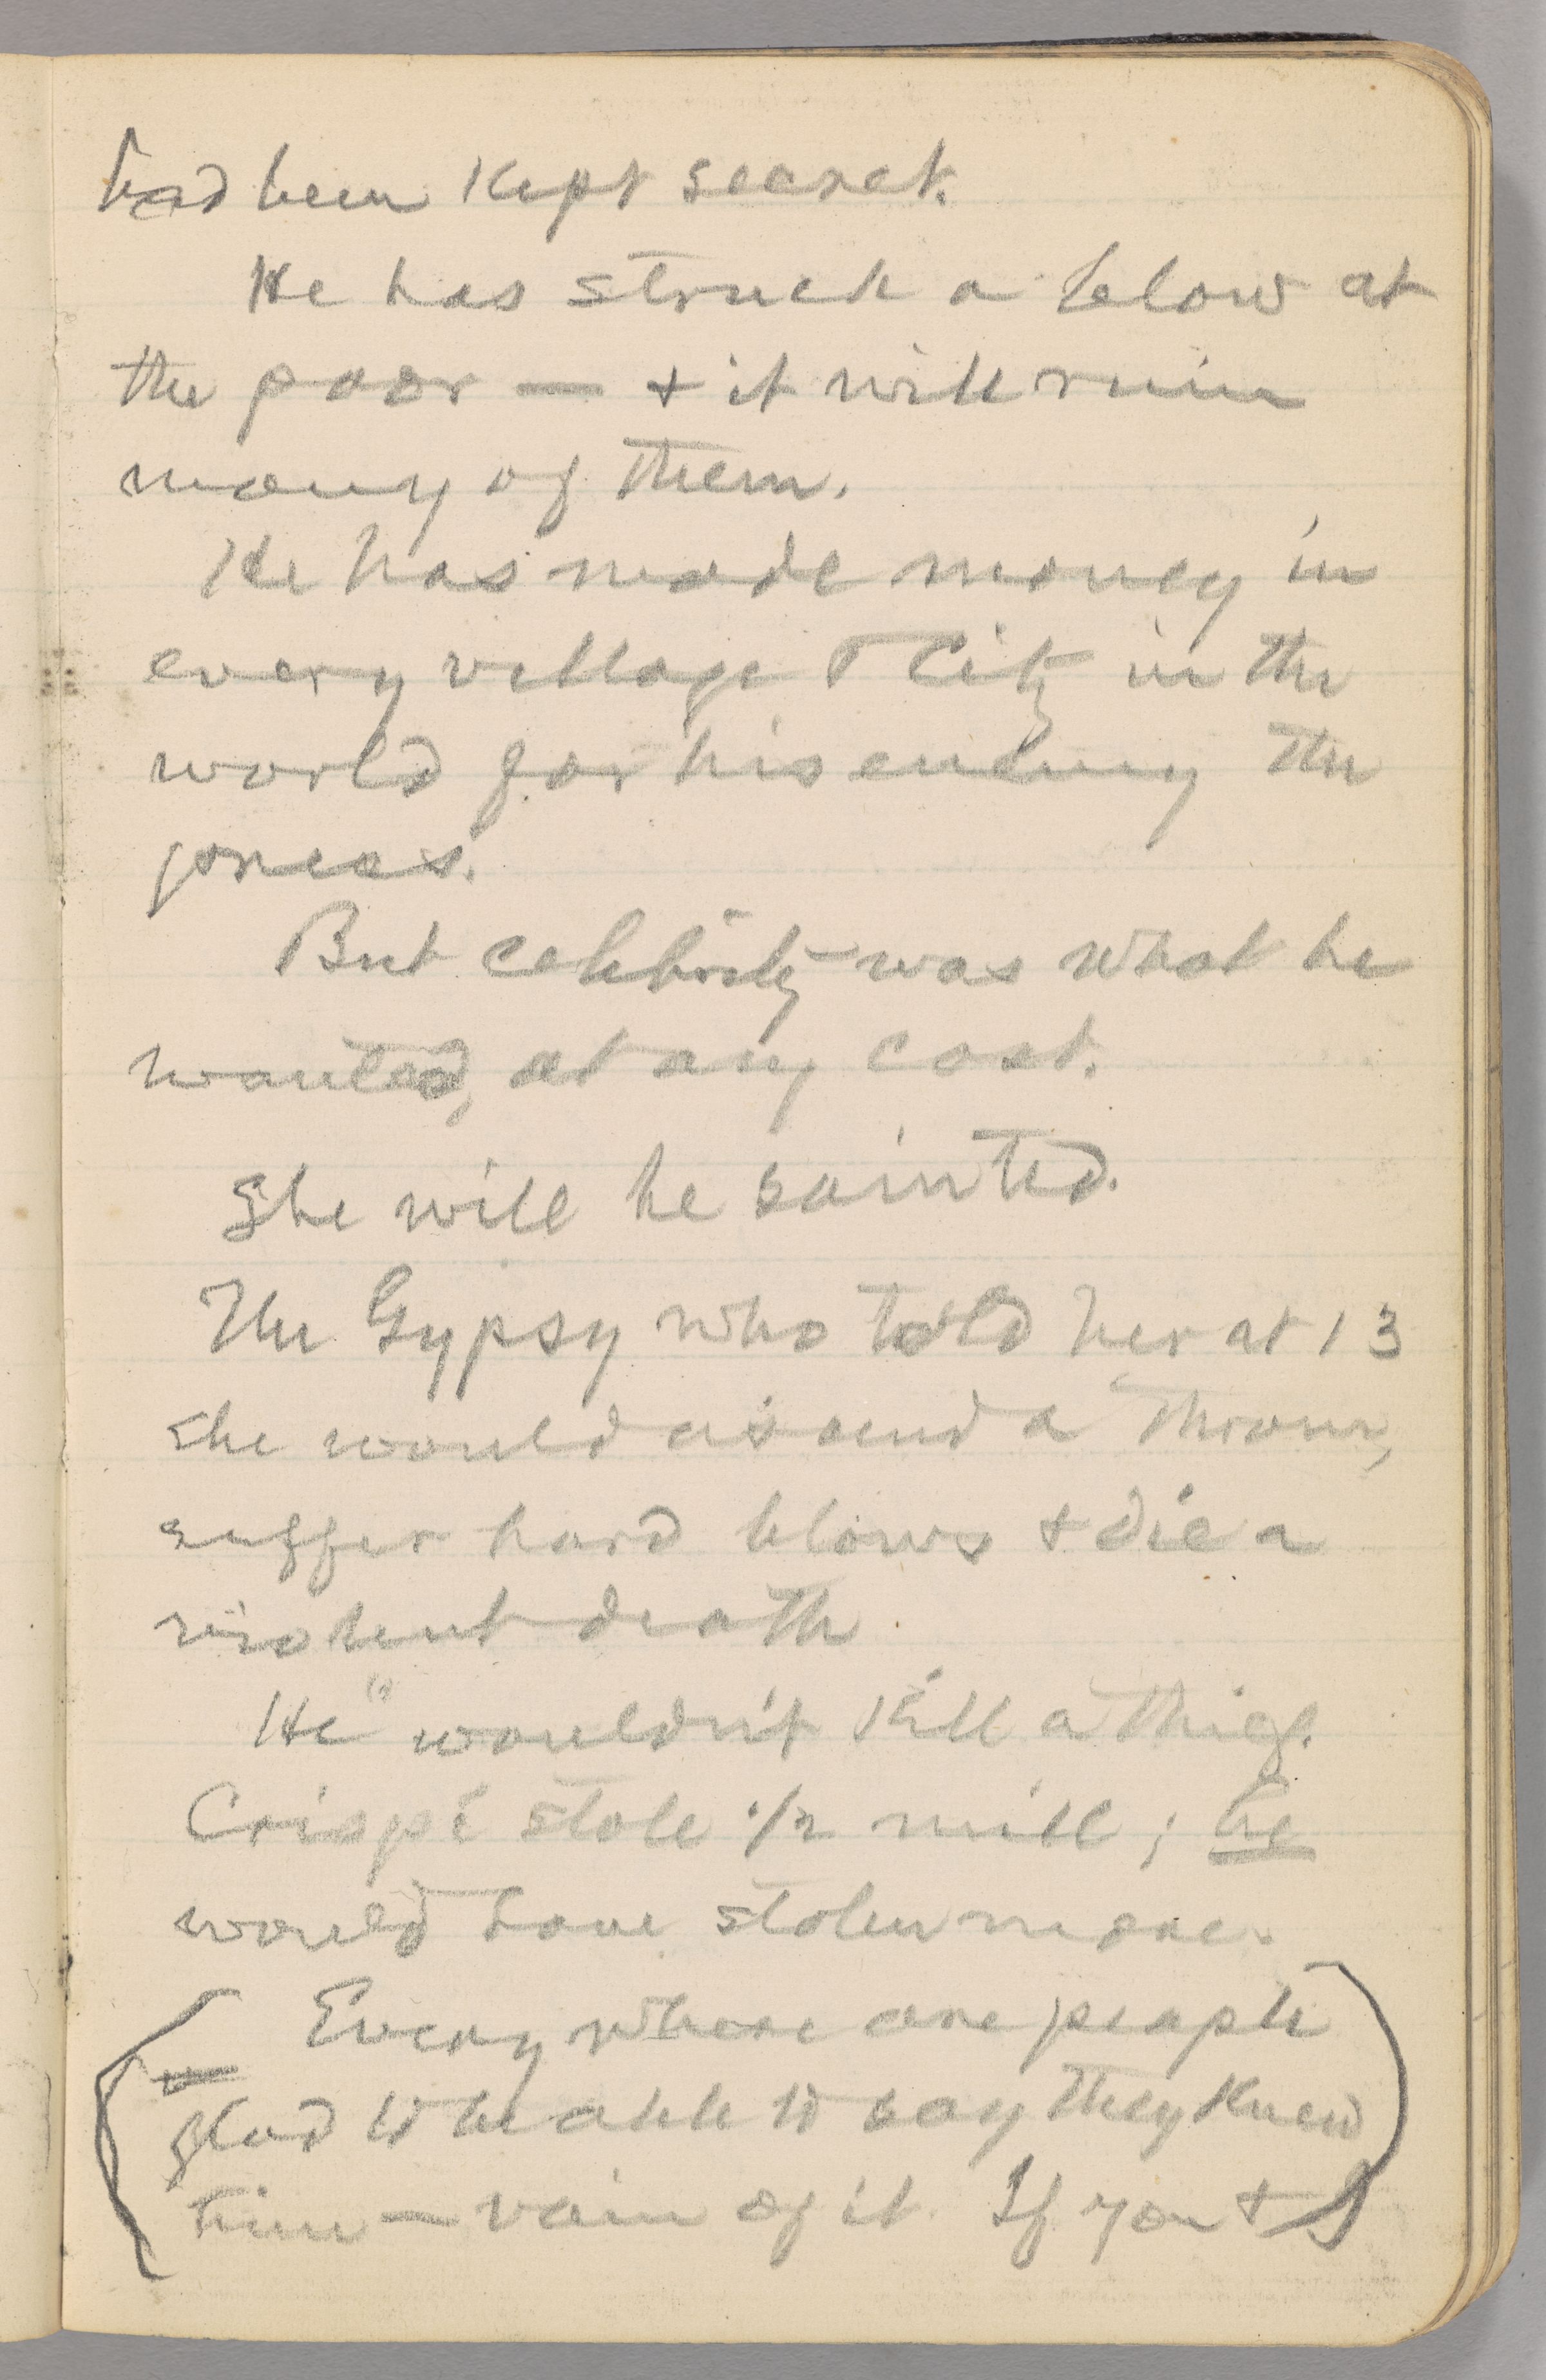 had been kept secret.
He has struck a blow at
the poor — & it will ruin
many of them.
He has made money in
every village & city in the
world for his enemy the
press.
But celebrity was what he
wanted, at any cost.
She will be sainted.
The Gypsy who told her at 13
she would ascend a throne,
suffer hard blows & die a
violent death.
"He" wouldn't kill a thief.
Crispi stole 1/2 mill; he
would have stolen more.
Everywhere are people
glad to be able to say they knew
him — vain of it. If you & I